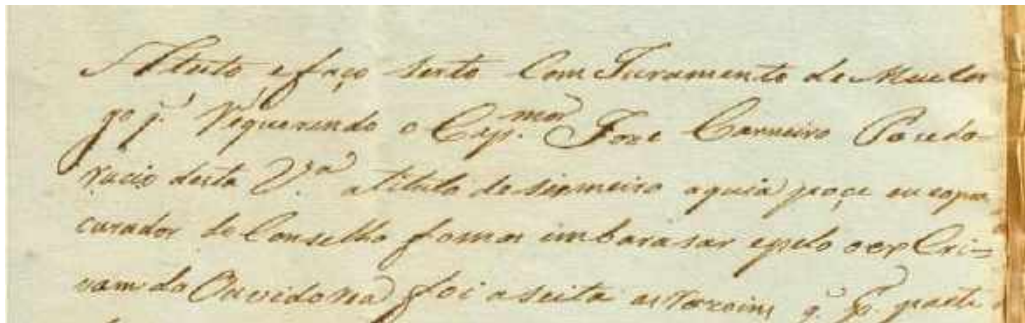 Atesto efaço serto Com Juramento de Meu Car
go q.' Requerendo o Cap.mor Joze Carneiro Pacedo
Rucio desta V.a atitulo desismeiro aquia poçe eu eopro
curador do Conselho fomos imbarasar epelo o ex Cri=
vam da Ouvidoria foi aseita as Rezoins q. P. parte